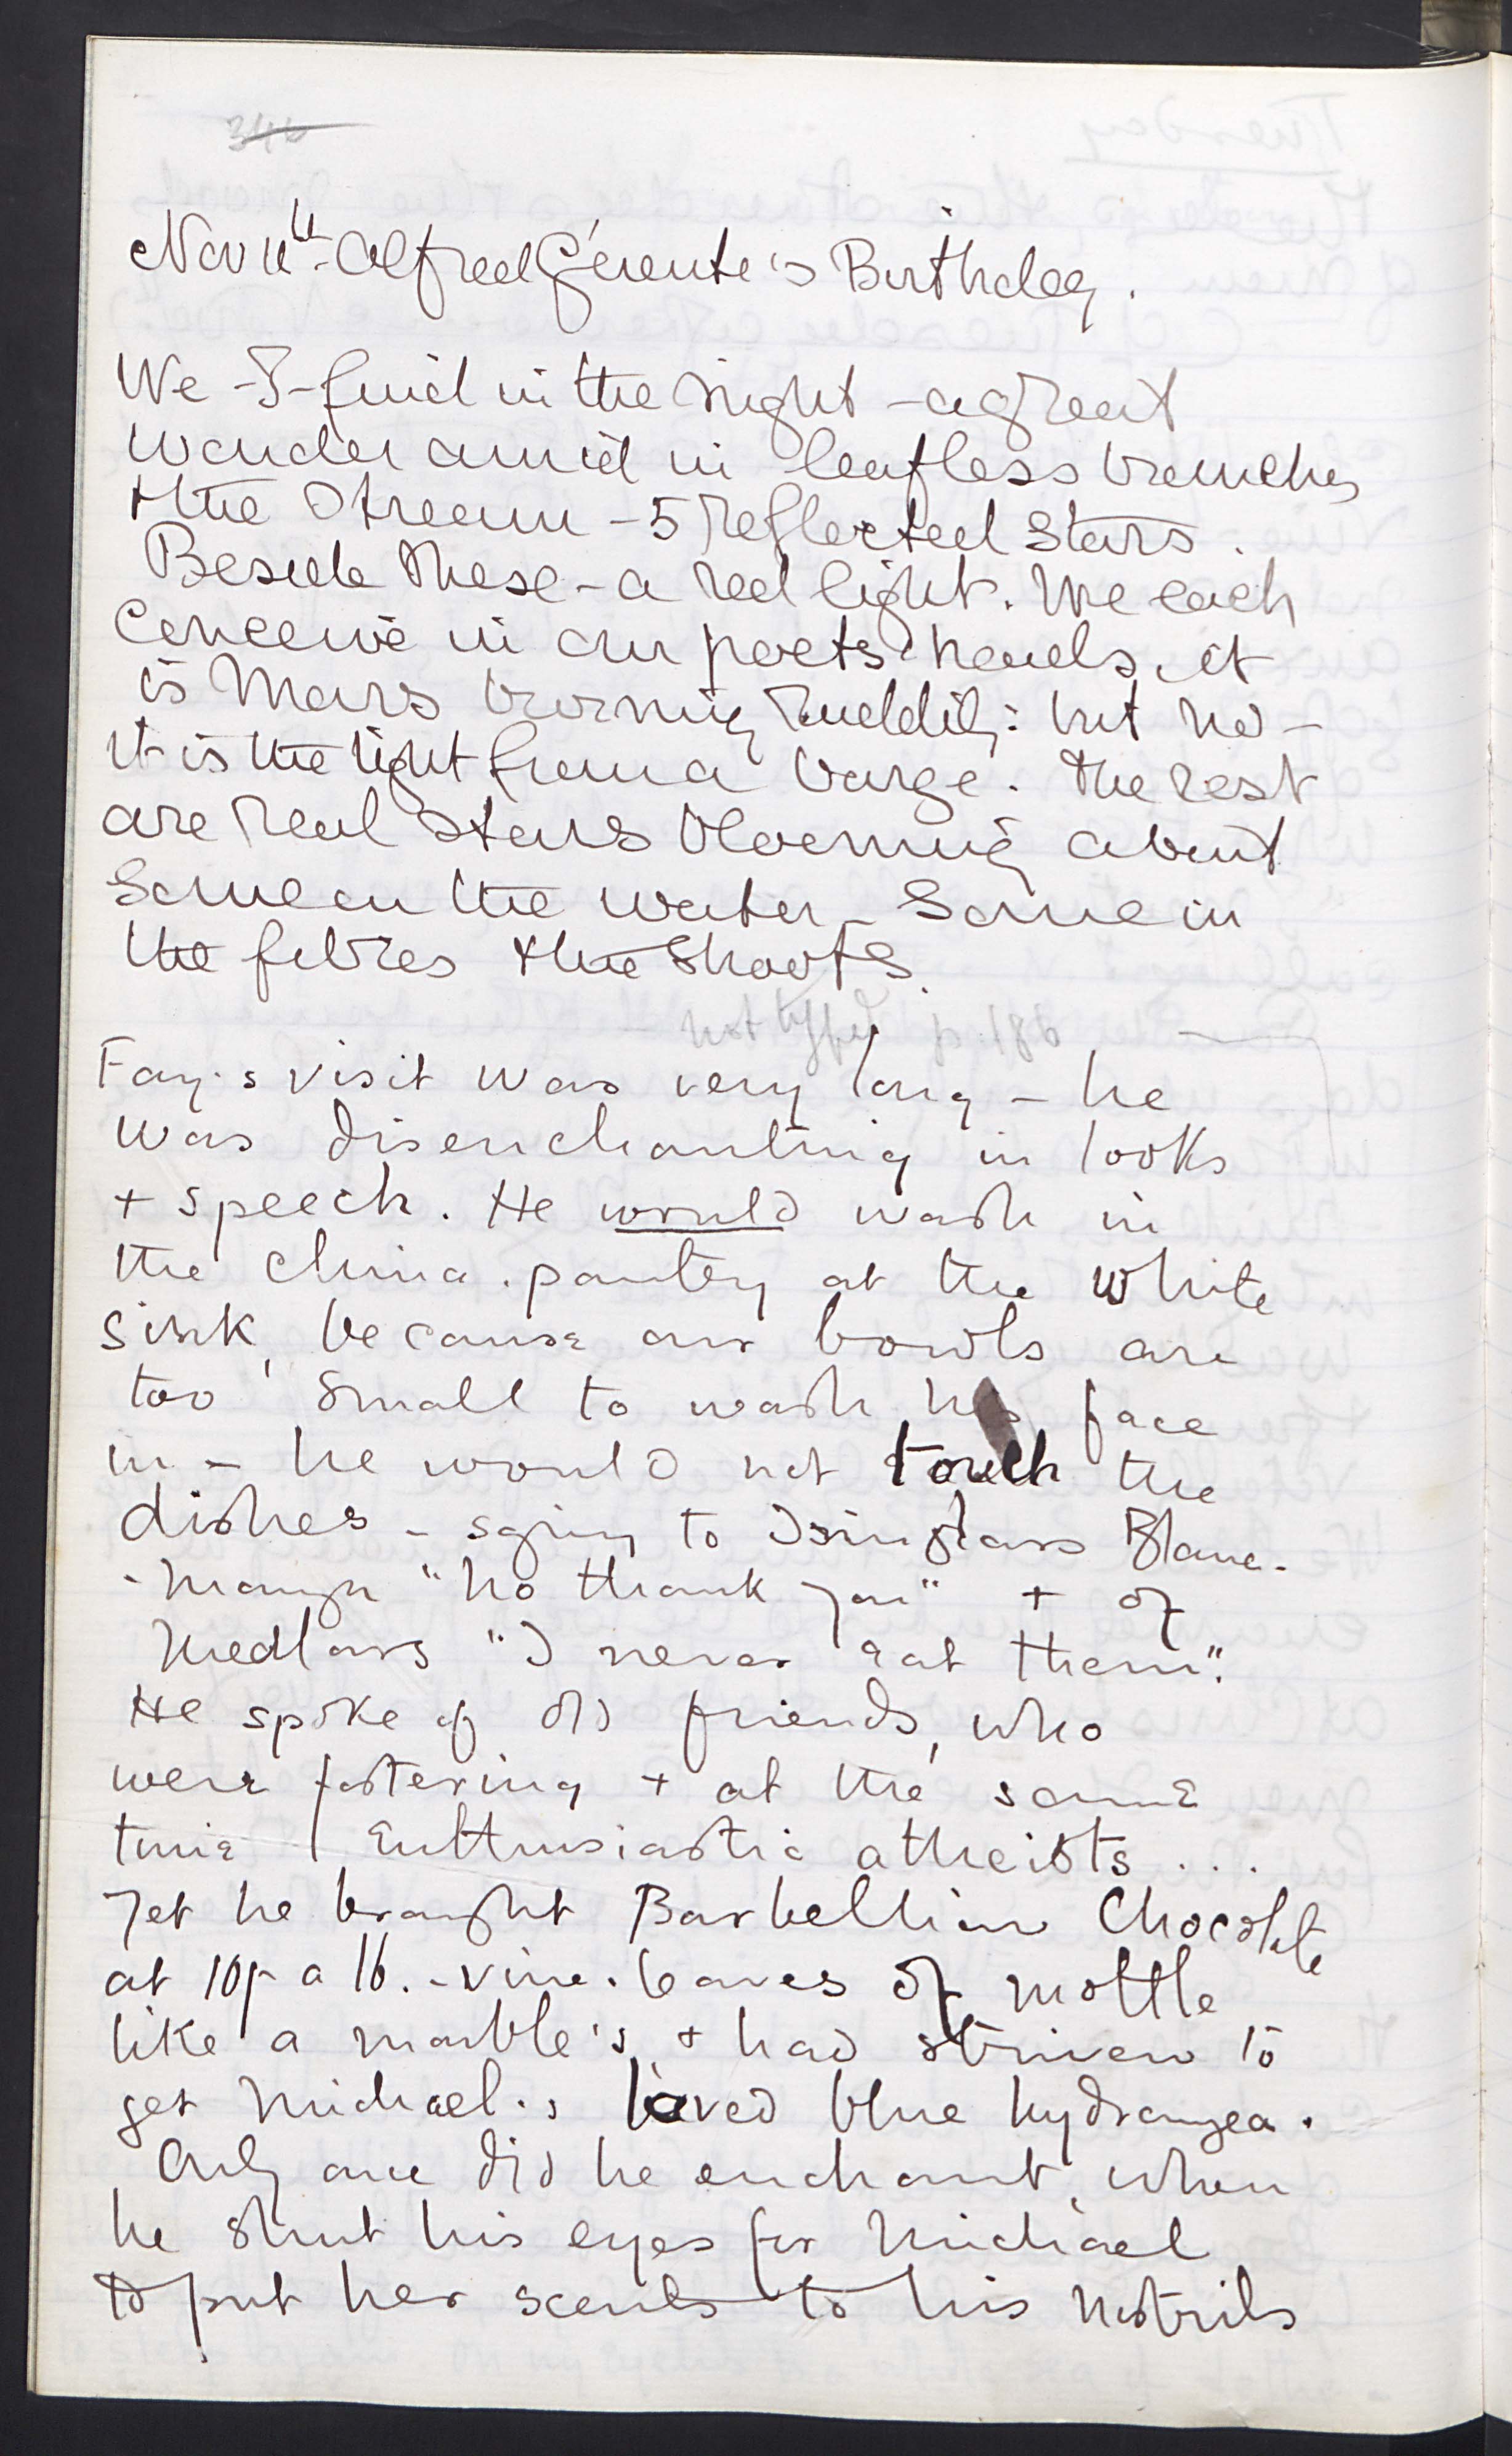 346
Nov 11th - Alfred Gérente's Birthday.
We - I - find in the night - a great
wonder amid in leafless branches
+ the Stream - 5 reflected Stars.
Beside these - a red light. We each
conceive in our poets' heads it
is Mars burning ruddily: but no -
it is the light from a barge. The rest
are real Stars blooming about
Some on the water - Some in
the fibres + the Shoots.
not typed p. 186
Fay's visit was very long - he
was disenchanting in looks
+ speech. He would wash in
the china-pantry at the white
sink, because our bowls are
too small to wash his face
in - he would not touch the
dishes - saying to Isinglass Blanc-
-mange "no thank you" + of
Medlars "I never eat them".
He spoke of old friends, who
were fostering + at the same
time enthusiastic atheists ...
Yet he brought Barbellion Chocolate
at 10/- a lb. - vine-leaves of mottle
like a marble's, + had striven to
get Michael's loved blue hydrangea.
Only once did he enchant, when
he shut his eyes for Michael
to put her scents to his nostrils